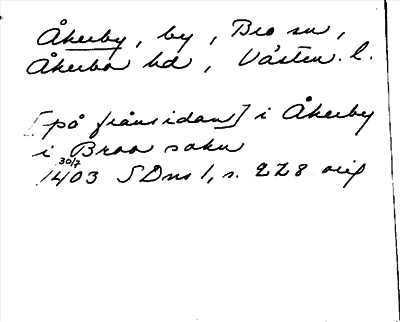 Åkerby, by, Bro sn,
Åkerbo hd, Västm. l.
[på frånsidan] i Åkerby
i Broa sokn
30/7
1403 SDns 1, s. 228 orig